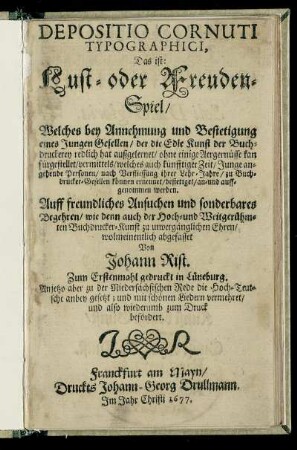 DEPOSITIO CORNUTI
TYPOGRAPHICI,
Das ist:
Lust- oder Freuden-
Spiel/
Welches bey Annehmung und Bestetigung
eines Jungen Gesellen/ der die Edle Kunst der Buch-
druckerey redlich hat außgelernet/ ohne einige Aergernüsse kan
fürgestellet/ vermittels welches auch künfftiger Zeit/ Junge an-
gehende Personen/ nach Verfliessung ihrer Lehr-Jahre/ zu Buch-
drucker-Gesellen können ernennet/ bestetiget/ an- und auff-
genommen werden.
Auff freundliches Ansuchen und sonderbares
Begehren/ wie denn auch der Hoch- und Weitgerühm-
ten Buchdrucker-Kunst zu unvergänglichen Ehren/
wolmeinentlich abgefasset
Von
Johann Rist.
Zum Erstenmahl gedruckt in Lüneburg.
Anjetzo aber zu der Niedersächsischen Rede die Hoch-Teut-
sche anbey gesetzt; und mit schönen Liedern vermehret/
und also wiederumb zum Druck
befördert.
Franckfurt am Mayn/
Druckts Johann-Georg Drullmann.
Im Jahr Christi 1677.